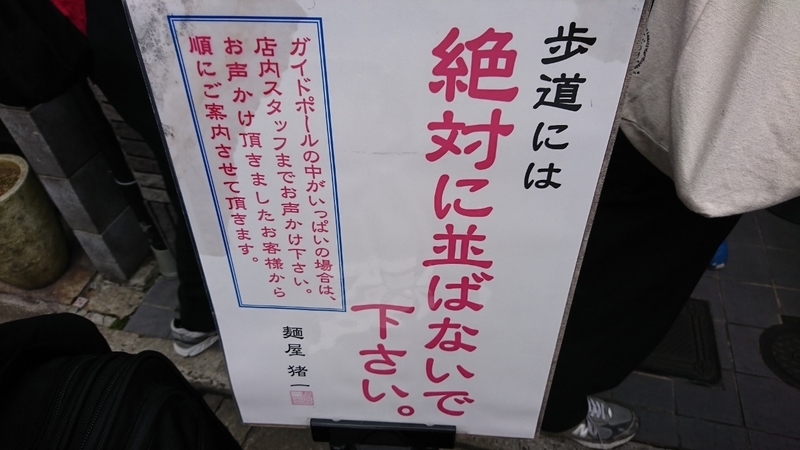 歩道には
絶対に並ばないで
下さい。
ガイドポールの中がいっぱいの場合は、
店内スタッフまでお声かけ下さい。
お声かけ頂きましたお客様から
順にご案内させて頂きます。
麺屋 猪一